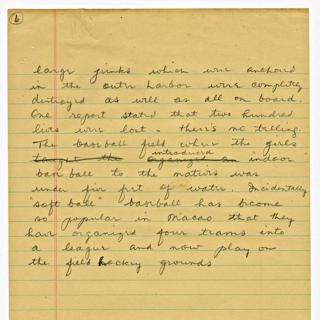 6
large junks which were anchored
in the outer harbor were completly
destroyed as well as all on board.
One report stated that two hundred
lives were lost - there's no telling.
The baseball field where the girls
introduced
target the organized an indoor
baseball to the natives was
under five feet of water. Incidentally
"soft base" baseball has become
so popular in Macao that they
have organized four teams into
a league and now play on
the field hockey grounds.